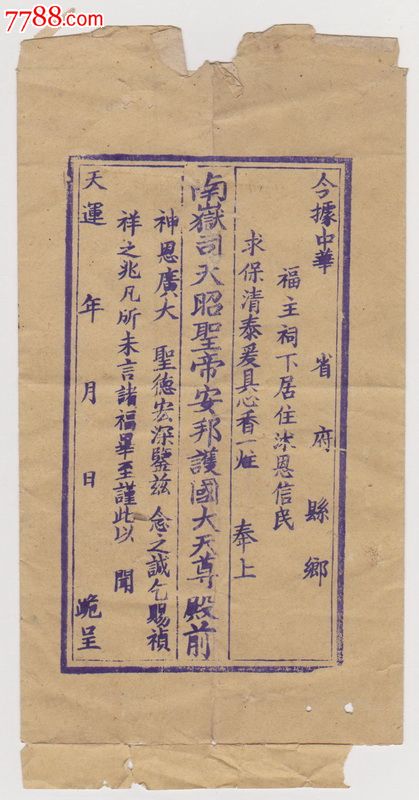 7788.com
今據中華 省 府 縣 鄉
福主祠下居住沐恩信民
求保清泰爰具心香一炷 奉上
南嶽司天昭聖帝安邦護國大天尊殿前
神恩廣大 聖德宏深鑒兹 念之誠乞賜禎
祥之兆凡所未言諸福畢至謹此以 聞
天運 年 月 日 跪呈